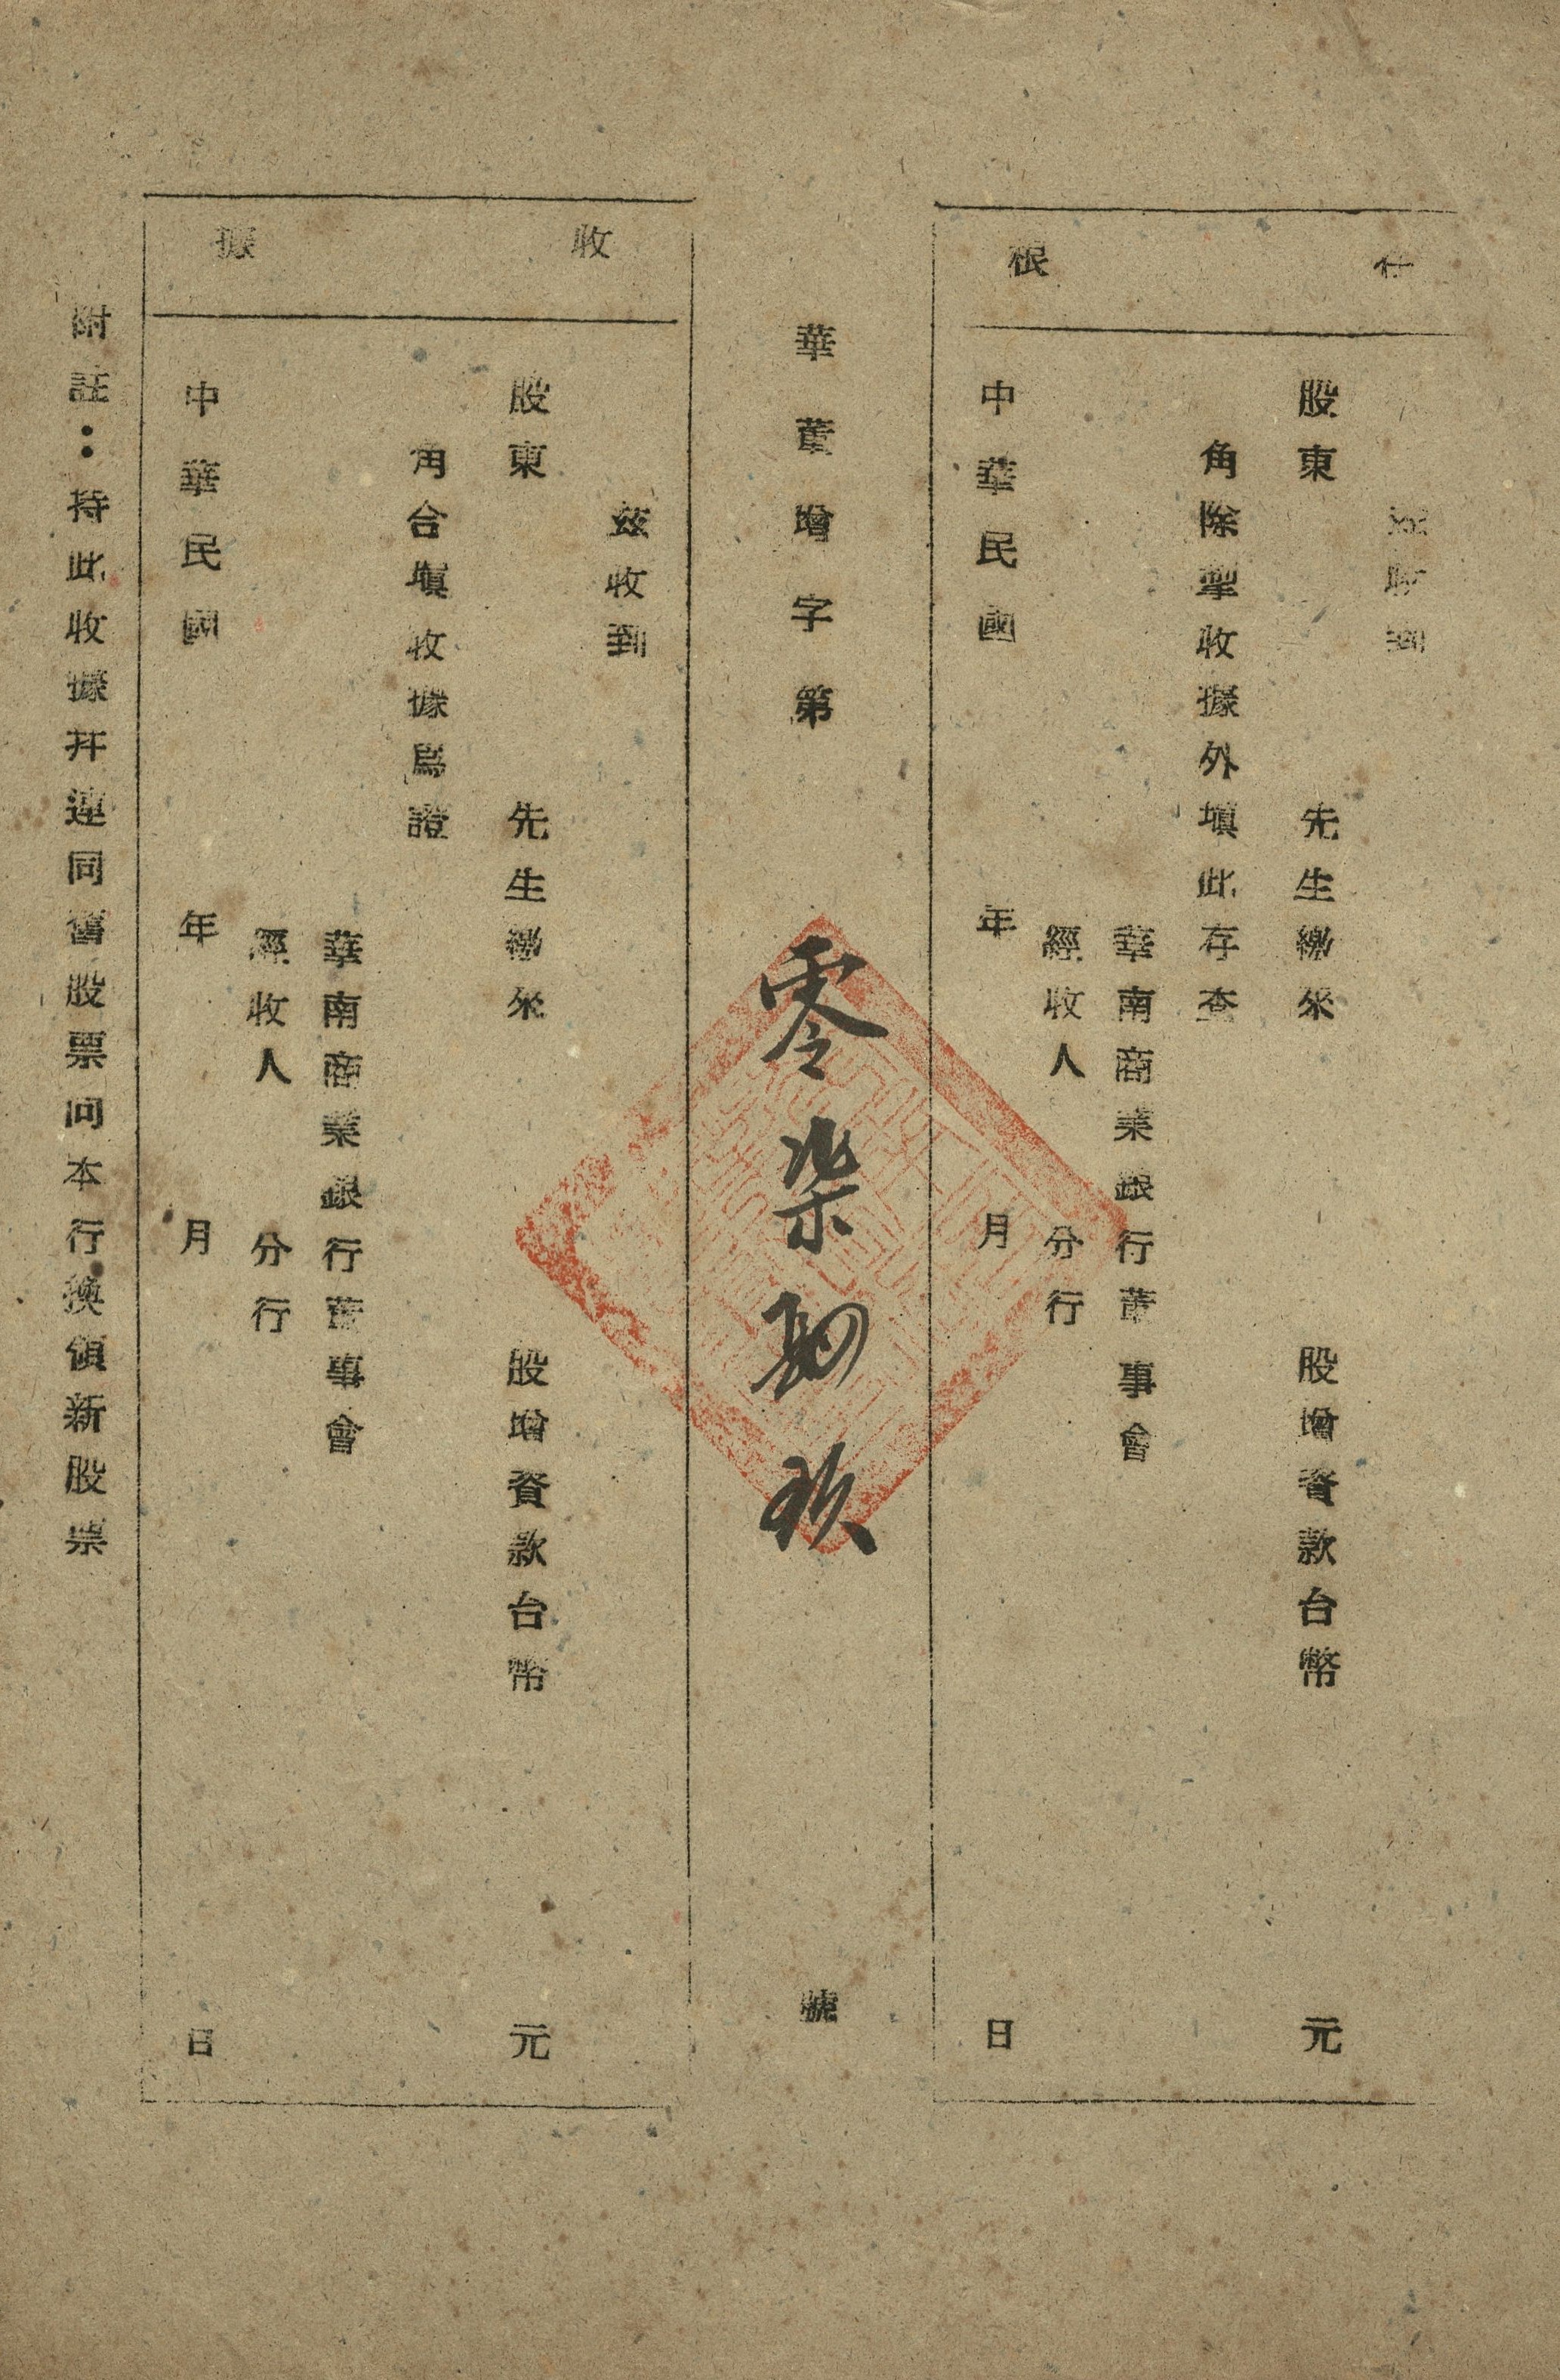 存根
茲收到
股東 先生繳來 股增資款台幣 元
角除掣收據外填此存查
華南商業銀行董事會
經收人 分行
中華民國 年 月 日
華董增字第 零柒 玖 號
收據
茲收到
股東 先生繳來 股增資款台幣 元
角合填收據爲證
華南商業銀行董事會
經收人 分行
中華民國 年 月 日
附註：持此收據幷連同舊股票向本行換領新股票